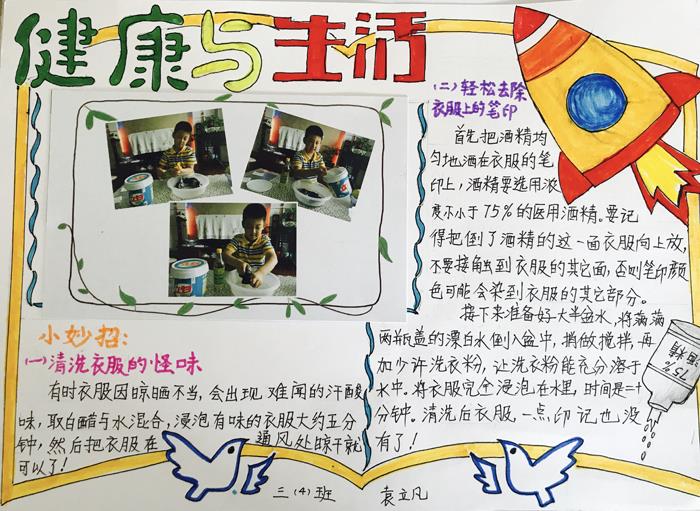 健康与生活
小妙招:
(一)清洗衣服的怪味
有时衣服因晾晒不当,会出现难闻的汗酸
味,取白醋与水混合,浸泡有味的衣服大约五分
钟,然后把衣服在通风处晾干就
可以了!
(二)轻松去除
衣服上的笔印
首先把酒精均
匀地洒在衣服的笔
印上,酒精要选用浓
度不小于75%的医用酒精。要记
得把倒了酒精的这一面衣服向上放,
不要接触到衣服的其它面,否则笔印颜
色可能会染到衣服的其它部分。
接下来准备好大半盆水,将满满
两瓶盖的漂白水倒入盆中,稍做搅拌,再
加少许洗衣粉,让洗衣粉能充分溶于
水中。将衣服完全浸泡在水里,时间是二十
分钟。清洗后衣服一点印记也没
有了!
75%
酒精
三(4)班 袁立凡